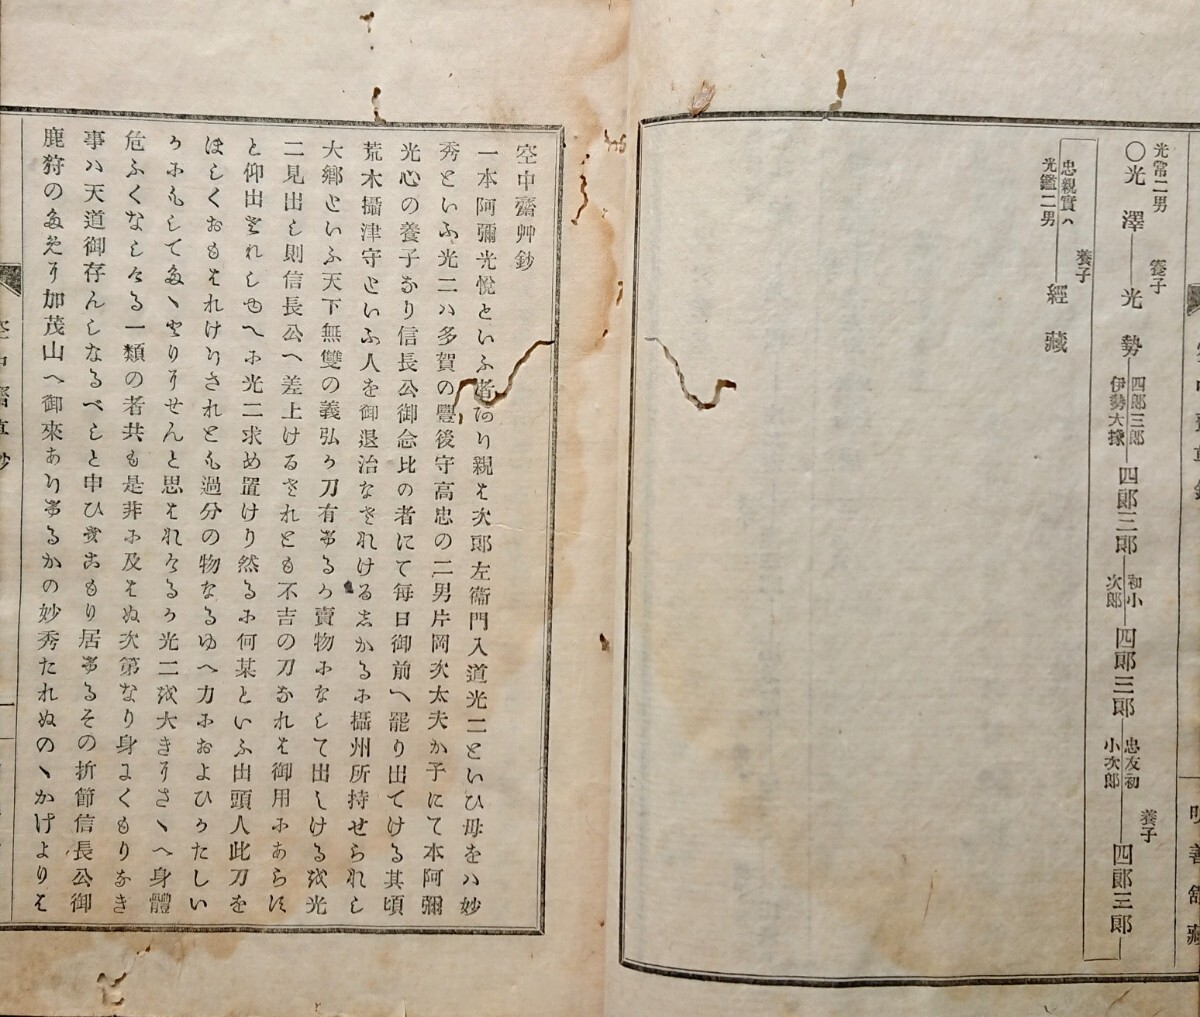 光常二男
〇光澤
養子
光勢
四郎三郎
伊勢大掾
四郎三郎
初小
次郎
四郎三郎
忠友初
小次郎
養子
四郎三郎
忠親實ハ
光鑑二男
養子
經藏
空中齋艸鈔
一本阿彌光悅といふ者あり親は次郎左衞門入道光二といひ母をハ妙
秀といふ光二ハ多賀の豐後守高忠の二男片岡次太夫か子にて本阿彌
光心の養子なり信長公御念比の者にて每日御前へ罷り出てける其頃
荒木攝津守といふ人を御退治なされけるしかるに攝州所持せられし
大鄕といふ天下無雙の義弘か刀有けるか賣物になして出しける越光
二見出し則信長公へ差上けるされとも不吉の刀なれは御用にあらす
と仰出されしゆへに光二求め置けり然るに何某といふ出頭人此刀を
ほしくおもはれけりされとも過分の物なるゆへ力におよひかたしい
かにもしてたゝとりにせんと思はれけるか光二越大きにさゝへ身體
危ふくなしける一類の者共も是非に及はぬ次第なり身にくもりなき
事ハ天道御存んしなるへしと申ひきこもり居けるその折節信長公御
鹿狩のために加茂山へ御來ありけるかの妙秀たれぬのゝかけよりは
明善館藏